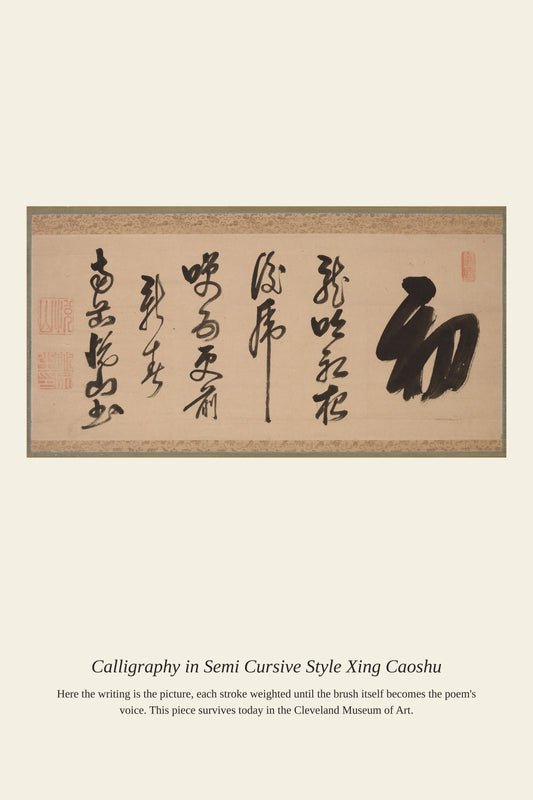 初
龍吟初夜
後虎
嘯五更前
新春
南岳悦山書
Calligraphy in Semi Cursive Style Xing Caoshu
Here the writing is the picture, each stroke weighted until the brush itself becomes the poem's
voice. This piece survives today in the Cleveland Museum of Art.